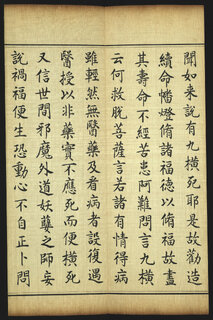 聞如來說有九橫死耶是故勸造
續命幡燈脩諸福德以脩福故盡
其壽命不經苦患阿難問言九橫
云何救脫菩薩言若諸有情得病
雖輕然無醫藥及看病者設復遇
醫授以非藥實不應死而便橫死
又信世間邪魔外道妖孽之師妄
說禍福便生恐動心不自正卜問